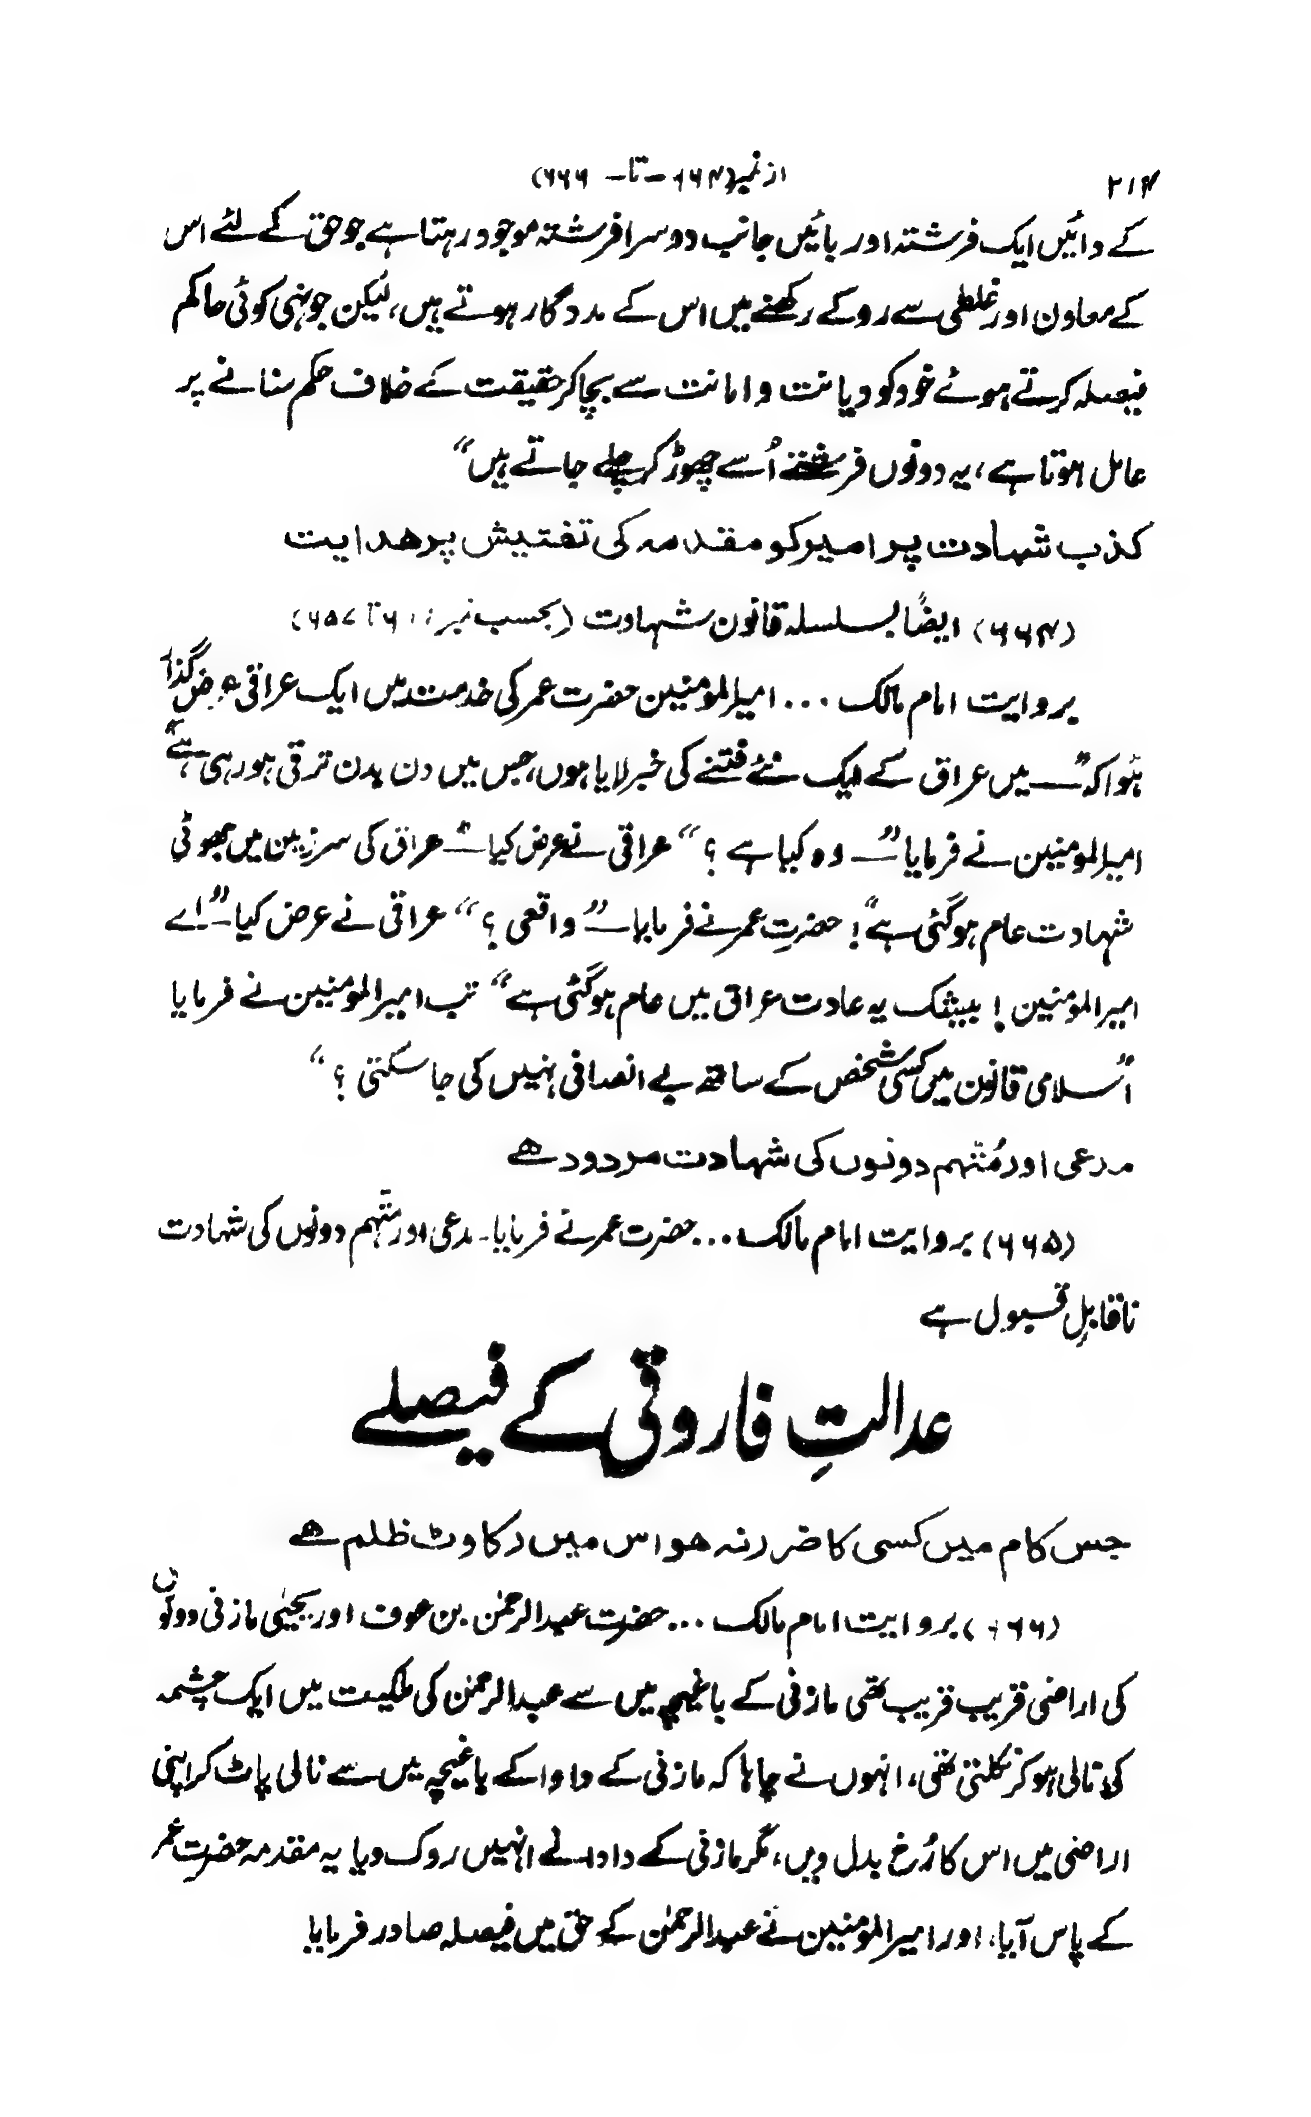 ۲۱۴ از نمبر (۶۶۴ - تا - ۶۶۶)
کے دائیں ایک فرشتہ اور بائیں جانب دوسرا فرشتہ موجود رہتا ہے جو حق کے لئے اس
کے معاون اور غلطی سے روکے رکھنے میں اس کے مددگار ہوتے ہیں، لیکن جونہی کوئی حاکم
فیصلہ کرتے ہوئے خود کو دیانت و امانت سے بچا کر حقیقت کے خلاف حکم سنانے پر
عامل ہوتا ہے، یہ دونوں فرشتے اُسے چھوڑ کر چلے جاتے ہیں“
کذب شہادت پر امیر کو مقدمہ کی تفتیش پر ھدایت
(۶۶۴) ایضًا بسلسلہ قانون شہادت (بحسب نمبر ۶۰۱ تا ۶۵۷)
بروایت امام مالک ... امیر المومنین حضرت عمر کی خدمت میں ایک عراقی عرض گذار
ہُوا کہ ”— میں عراق کے ایک نئے فتنے کی خبر لایا ہوں، جس میں دن بدن ترقی ہو رہی ہے“
امیر المومنین نے فرمایا —” وہ کیا ہے ؟“ عراقی نے عرض کیا —” عراق کی سرزمین میں جھوٹی
شہادت عام ہو گئی ہے“! حضرتِ عمر نے فرمایا —” واقعی ؟“ عراقی نے عرض کیا —” اے
امیر المومنین ! بیشک یہ عادت عراق میں عام ہو گئی ہے“ تب امیر المومنین نے فرمایا
”اسلامی قانون میں کسی شخص کے ساتھ بے انصافی نہیں کی جا سکتی ؟“
مدعی اور مُتّہم دونوں کی شہادت مردود ھے
(۶۶۵) بروایت امام مالک ... حضرت عمر نے فرمایا - مدعی اور متّہم دونوں کی شہادت
ناقابلِ قبول ہے
عدالتِ فاروقی کے فیصلے
جس کام میں کسی کا ضرر نہ ھو اس میں رکاوٹ ظلم ھے
(۶۶۶) بروایت امام مالک ... حضرت عبدالرحمٰن بن عوف اور یحییٰ مازنی دونوں
کی اراضی قریب قریب تھی مازنی کے باغیچہ میں سے عبدالرحمٰن کی ملکیت میں ایک چشمہ
کی نالی ہو کر نکلتی تھی، انہوں نے چاہا کہ مازنی کے دادا کے باغیچہ میں سے نالی پاٹ کر اپنی
اراضی میں اس کا رُخ بدل دیں، مگر مازنی کے دادا نے انہیں روک دیا یہ مقدمہ حضرت عمر
کے پاس آیا، اور امیر المومنین نے عبدالرحمٰن کے حق میں فیصلہ صادر فرمایا